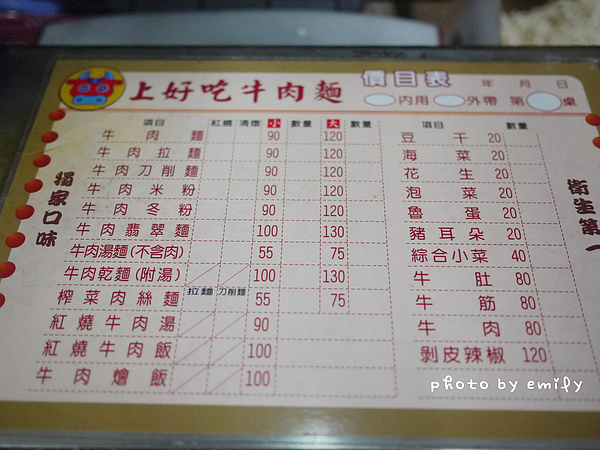 上好吃牛肉麵 價目表 年 月 日
內用 外帶 第 桌
項目 紅燒 清燉 小 數量 大 數量 項目 數量
牛肉麵 90 120 豆干 20
牛肉拉麵 90 120 海菜 20
牛肉刀削麵 90 120 花生 20
牛肉米粉 90 120 泡菜 20
牛肉冬粉 90 120 魯蛋 20
牛肉翡翠麵 100 130 豬耳朵 20
牛肉湯麵(不含肉) 55 75 綜合小菜 40
牛肉乾麵(附湯) 100 130 牛肚 80
榨菜肉絲麵 拉麵 刀削麵 55 75 牛筋 80
紅燒牛肉湯 90 牛肉 80
紅燒牛肉飯 100 剝皮辣椒 120
牛肉燴飯 100
獨家口味
衛生第一
photo by emify